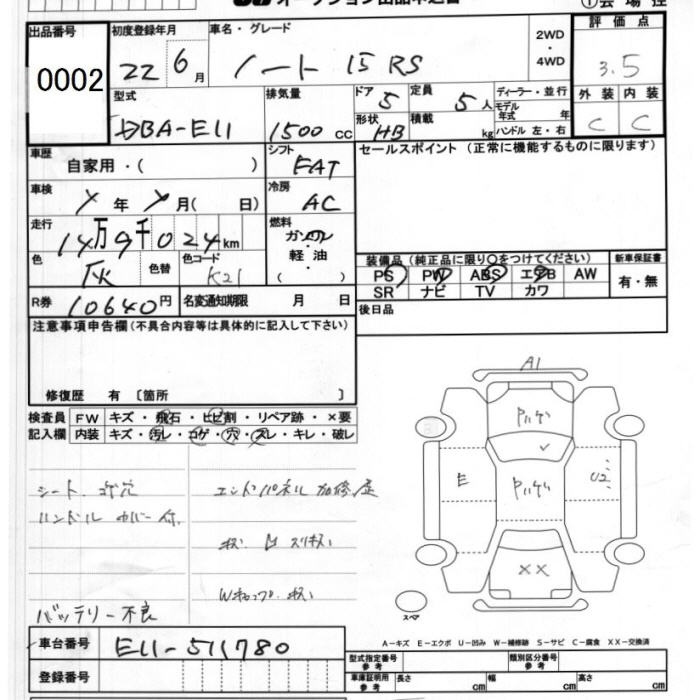 出品番号 0002
初度登録年月 22 6月
車名・グレード ノート 15 RS
2WD・4WD
評価点 3.5
型式 DBA-E11
排気量 1500 CC
ドア 5
形状 HB
定員 5人
積載 kg
ディーラー・並行
モデル年式 年
ハンドル 左・右
外装 C
内装 C
車歴 自家用・( )
シフト FAT
セールスポイント (正常に機能するものに限ります)
車検 年 月( 日)
冷房 AC
走行 14万9千024km
燃料 ガソリン
軽・油
( )
色 灰 色替
色コード K21
装備品 (純正品に限り○をつけてください)
新車保証書
PS PW ABS エアB AW
有・無
SR ナビ TV カワ
R券 10640円
名変通知期限 月 日
後日品
注意事項申告欄(不具合内容等は具体的に記入して下さい)
修復歴 有 〔箇所 〕
A1
検査員記入欄
FW キズ・飛石・ヒビ割・リペア跡・×要
内装 キズ・汚レ・コゲ・穴・スレ・キレ・破レ
E
U2
シート コゲ穴
エンドパネル 加修歴
ハンドル カバー付
××
バッテリー不良
スペア
車台番号 E11-511780
A-キズ E-エクボ U-凹み W-補修跡 S-サビ C-腐食 XX-交換済
登録番号
型式指定番号 参考
類別区分番号 参考
車庫証明用 参考
長さ cm
幅 cm
高さ cm